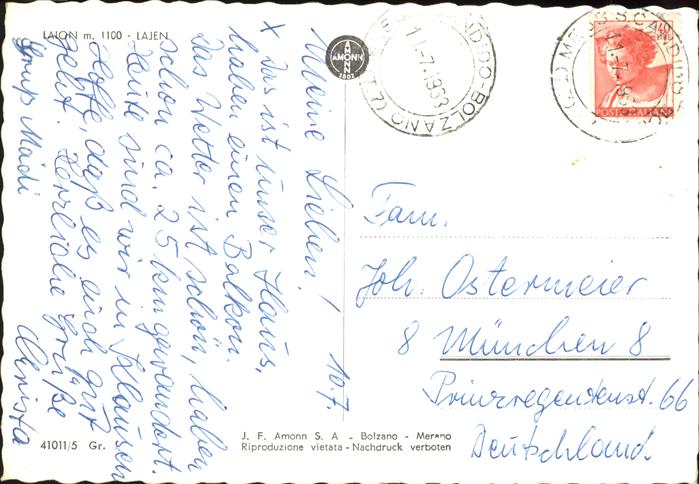 LAION m. 1100 - LAJEN
Meine Lieben! 10.7.
X das ist unser Haus,
haben einen Balkon.
Das Wetter ist schön, haben
schon ca. 25 km gewandert.
Heute sind wir in Klausen
Hoffe, daß es euch gut
geht. Herzliche Grüße
Christa
AMONN
1802
11-7.1963
BOLZANO
40
POSTE ITALIANE
11-7-1963
Fam.
Joh. Ostermeier
8 München 8
Prinzregentenst. 66
Deutschland.
J. F. Amonn S. A - Bolzano - Merano
41011/5 Gr. Riproduzione vietata - Nachdruck verboten